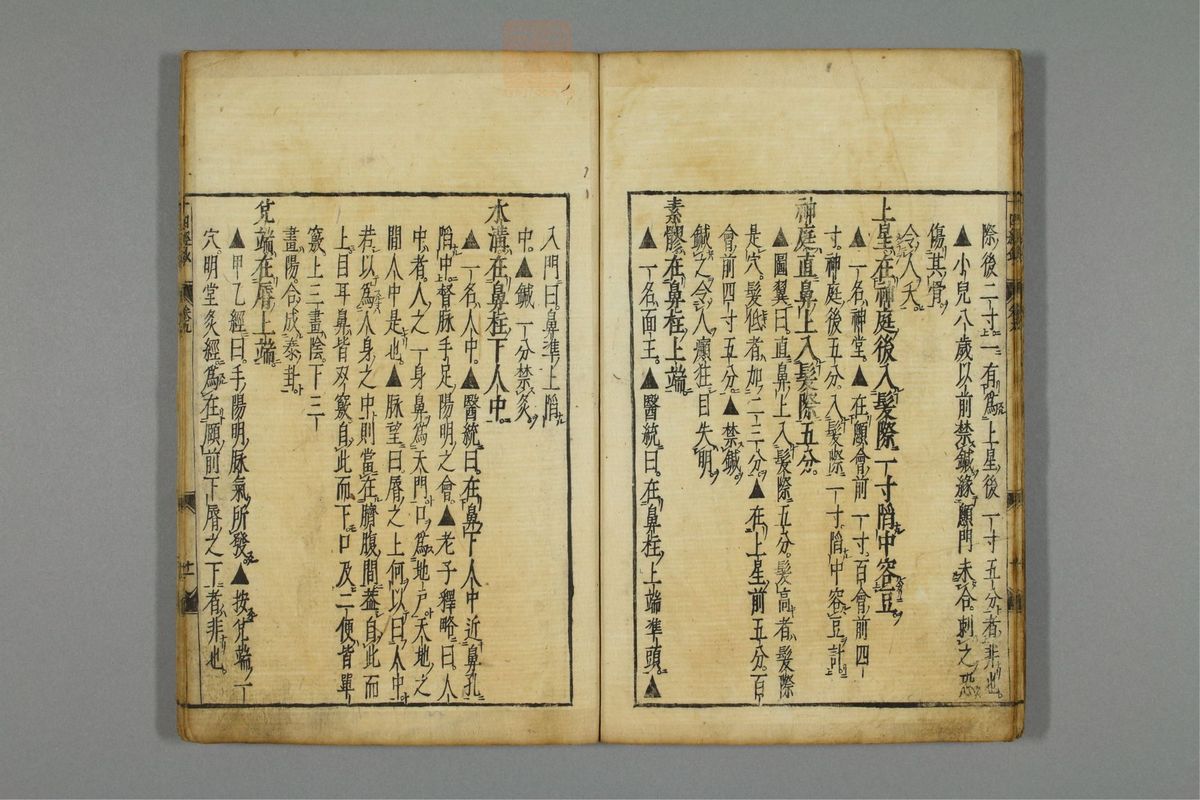 際後二寸一有爲上星後一寸五分者非也
▲小兒八歲以前禁鍼緣顖門未合刺之恐
傷其骨
令人夭
上星在神庭後入髮際一寸陷中容豆
▲一名神堂▲在顖會前一寸百會前四
寸神庭後五分入髮際一寸陷中容豆計
神庭直鼻上入髮際五分
▲圖翼曰直鼻上入髮際五分髮高者髮際
是穴髮低者加二三分▲在上星前五分百
會前四寸五分▲禁鍼
鍼之令人癲狂目失明
素髎在鼻柱上端
▲一名面王▲醫統曰在鼻柱上端準頭▲
入門曰鼻準上陷
中▲鍼一分禁灸
水溝在鼻柱下人中
▲一名人中▲醫統曰在鼻下人中近鼻孔
陷中督脉手足陽明之會▲老子釋略曰人
中者人之一身鼻爲天門口爲地戶天地之
間人中是也▲脉望曰脣之上何以曰人中
若以爲人身之中則當在臍腹間蓋自此而
上目耳鼻皆双竅自此而下口及二便皆單
竅上三畫陰下三一
畫陽合成泰卦
兌端在脣上端
▲甲乙經曰手陽明脉氣所發▲按兌端一
穴明堂灸經爲在頤前下脣之下者非也